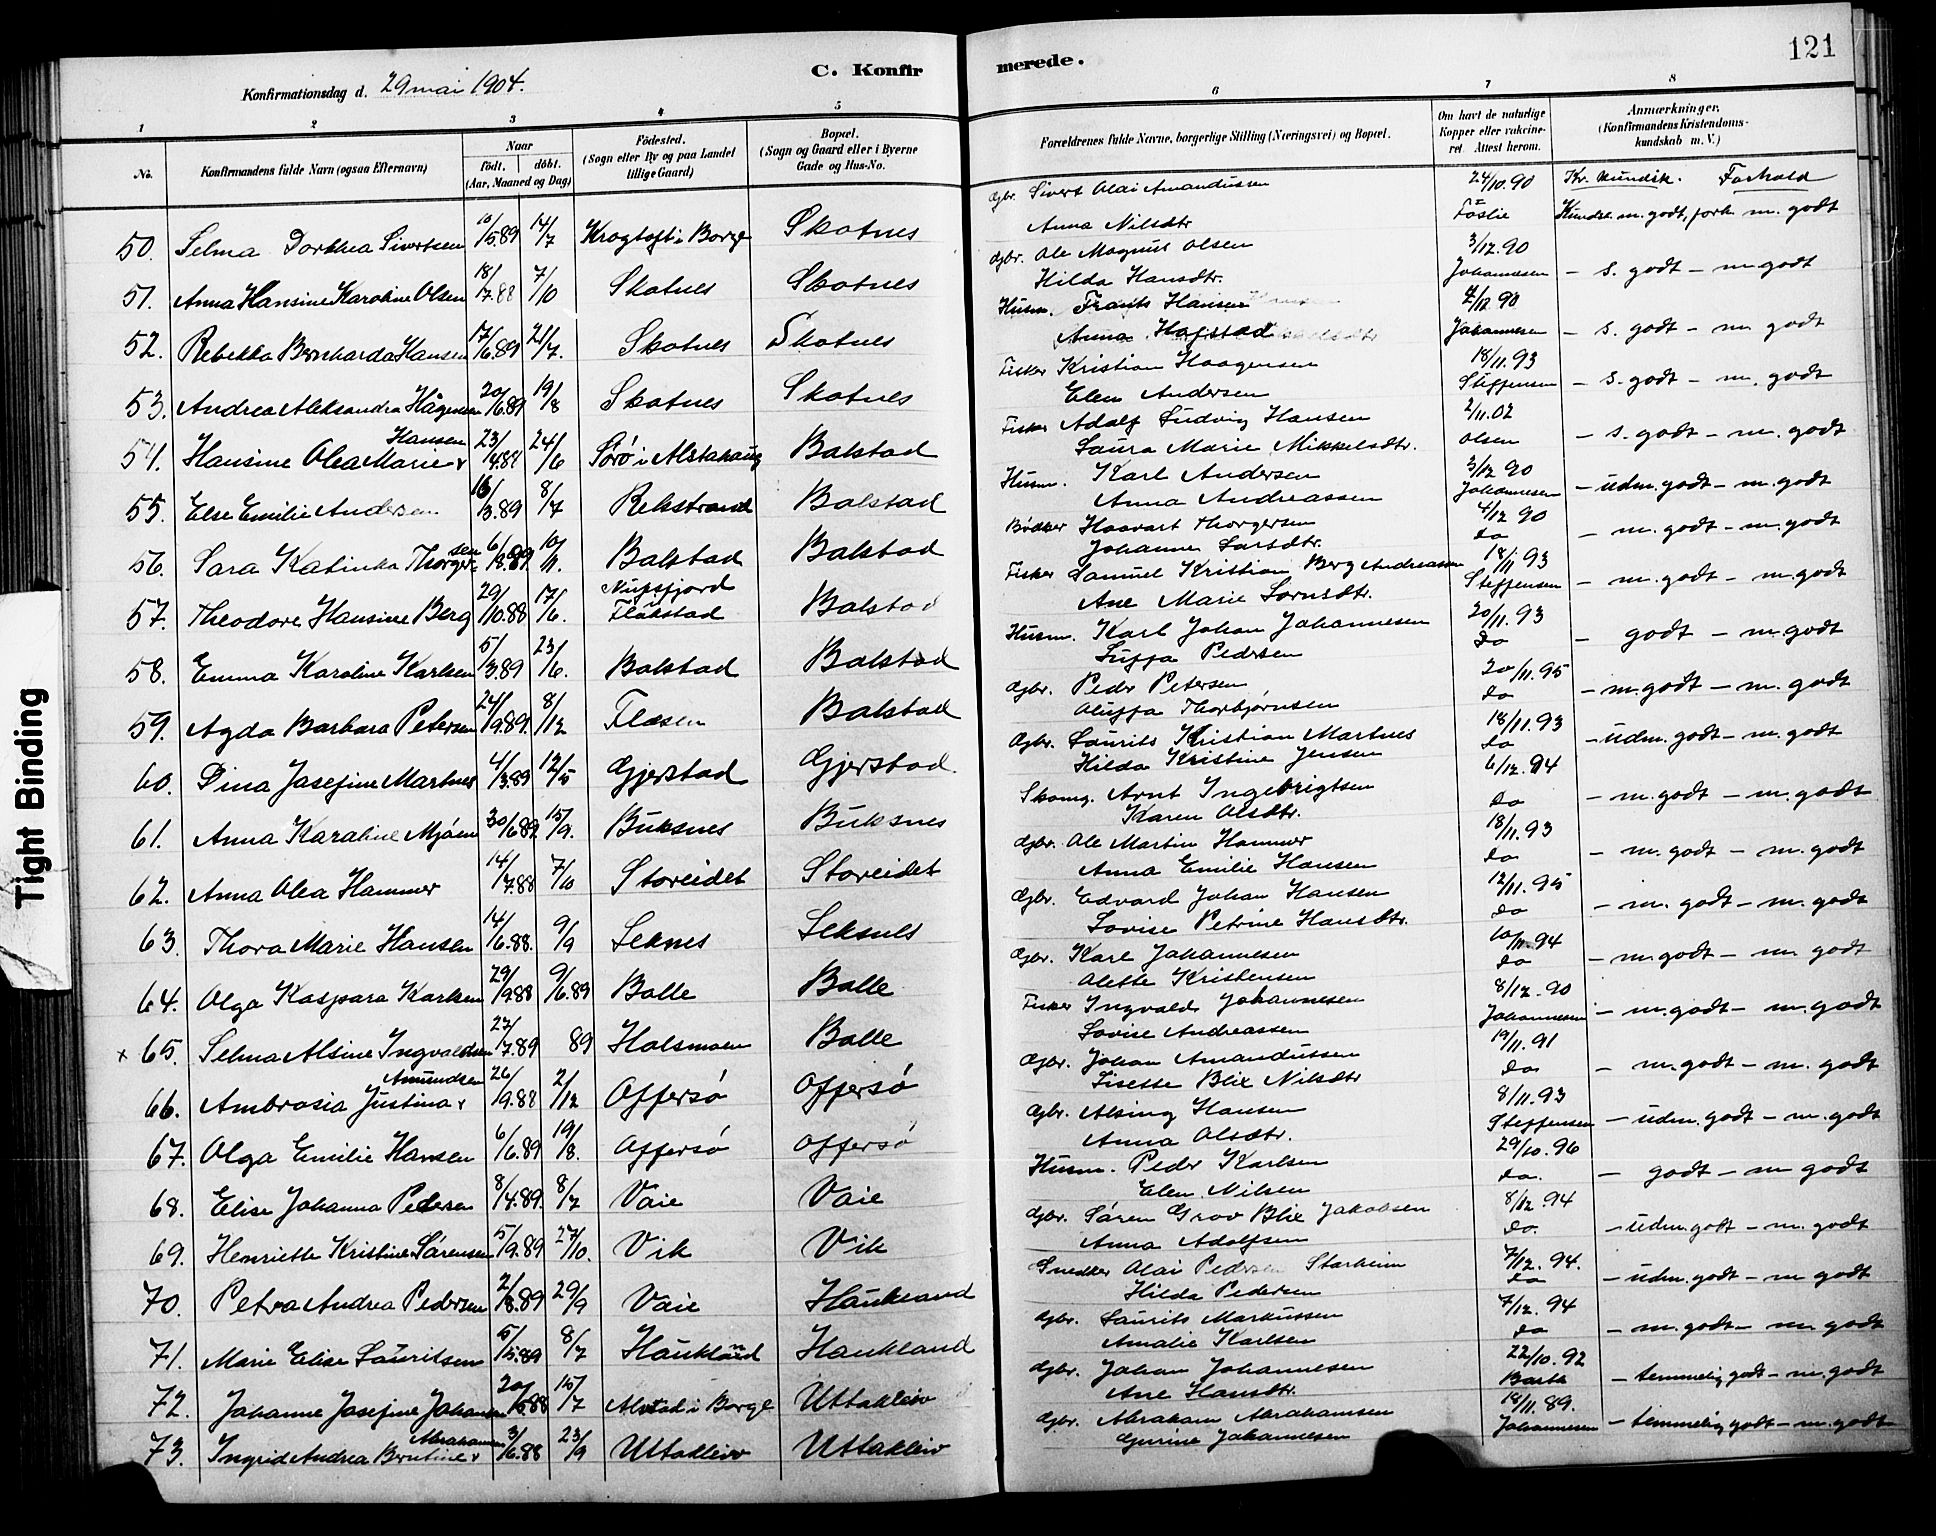 121
C. Konfirmerede.
Konfirmationsdag d. 29 mai 1904.
1 2 3 4 5 6 7 8
No. Konfirmandens fulde Navn (ogsaa Efternavn) Naar født. døbt. (Aar, Maaned og Dag) Fødested. (Sogn eller By og paa Landet tillige Gaard) Bopæl. (Sogn og Gaard eller i Byerne Gade og Hus-No. Forældrenes fulde Navne, borgerlige Stilling (Næringsvei) og Bopæl. Om havt de naturlige Kopper eller vakcineret. Attest herom. Anmærkninger. (Konfirmandens Kristendomskundskab m. V.)
Kr. kundsk. Forhold
50. Selma Dorthea Sivertsen 10/5.89 14/7 Krogtoft i Borge Skotnes Gbr. Sivert Olai Amandussen Anna Nilsdtr 24/10.90 Föslie Kundsk. m. godt, forh. m. godt
51. Anna Hansine Karoline Olsen 18/7.88 7/10 Skotnes Skotnes Gbr. Ole Magnus Olsen Hilda Hansdtr. 3/12.90 Johannesen - s. godt - m. godt
52. Rebekka Bernharda Hansen 17/6.89 21/7. Skotnes Skotnes Husm. Frants Hansen Anna Hofstad 4/12 90 Johannesen - s. godt - m. godt
53. Andrea Aleksandra Hågensen 20/6.89 19/8 Skotnes Skotnes Fisker Kristian Haagensen Elen Andersen 18/11.93 Steffensen - s. godt - m. godt
54. Hansine Olea Marie Hansen 23/4.89 24/6 Sørø i Alstahaug Balstad Fisker Adolf Ludvig Hansen Laura Marie Mikkelsdtr. 2/11.02 Olsen - s. godt - m. godt
55. Else Emilie Andersen 16/3.89 8/7 Rekstrand Balstad Husm. Karl Andersen Anna Andreassen 3/12 90 Johannesen - udm. godt - m. godt
56. Sara Katinka Thorgersen 6/8.89 10/11. Balstad Balstad Bødker Haavart Thorgersen Johanna Larsdtr. 4/12 90 do - m. godt - m. godt
57. Theodore Hansine Berg 29/10.88 17/6. Nufsfjord i Flakstad Balstad Fisker Samuel Kristian Berg Andreassen Ane Marie Sørnsdtr. 18/11 93 Steffensen - m. godt - m. godt
58. Emma Karoline Karlsen 5/3.89 23/6. Balstad Balstad Husm. Karl Johan Johannesen Suffa Pedersen 20/11.93 do - godt - m. godt
59. Agda Barbara Petersen 24/9.89. 8/12 Flæsen Balstad Gbr. Peder Petersen Oluffa Thorbjørnsen 20/11.95 do - m. godt - m. godt
60. Dina Josefine Martnes 4/3.89 12/5 Gjerstad Gjerstad. Gbr. Laurits Kristian Martnes Hilda Kristine Jensen 18/11.93 do - udm. godt - m. godt
61. Anna Karoline Mjøen 30/6.89. 15/9. Buksnes Buksnes Skomg. Arnt Ingebrigtsen Karen Olsdtr. 6/12.94 do - m. godt - m. godt
62. Anna Olea Hammer 14/7.88 7/10 Storeidet Storeidet Gbr. Ole Martin Hammer Anna Emilie Hansen 18/11.93 do - m. godt - m. godt
63. Thora Marie Hansen 14/6.88. 9/9 Leknes Leknes Gbr. Edvard Johan Hansen Lovise Petrine Hansdtr. 12/11.95 do - m. godt - m. godt
64. Olga Kaspara Karlsen 29/9.88 9/6.89 Bolle Bolle Gbr. Karl Johannesen Alette Kristensen 10/11.94 do - m. godt - m. godt
x 65. Selma Alsine Ingvaldsen 27/7.89 89 Holsmoen Bolle Fisker Ingvald Johannesen Lovise Andreassen 8/12.90 Johannesen - m. godt - m. godt
66. Ambrosia Justina Amundsen 26/9.88 2/12 Offersø Offersø Gbr. Johan Amandussen Lisette Blix Nilsdtr 19/11.91 do - m. godt - m. godt
67. Olga Emilie Hansen 6/6.89 19/8. Offersø Offersø Gbr. Alsing Hansen Anna Olsdtr. 8/11.93 Steffensen - udm. godt - m. godt
68. Elise Johanna Pedersen 8/4.89. 8/7 Vaie Vaie Husm. Peder Karlsen Elen Nilsen 29/10.96 do. - godt - m. godt
69. Henriette Kristine Sørensen 5/9.89 27/10. Vik Vik Gbr. Søren Grov Blix Jakobsen Anna Adolfsen 8/12.94 do. - udm. godt - m. godt
70. Petra Andrea Pedersen 2/8.89 29/9 Vaie Haukeland Snedker Olai Pedersen Starheim Hilda Pedersen 7/12.94. do - udm. godt - m. godt
71. Marie Elise Lauritsen 5/5.89 8/7 Haukland Haukland Gbr. Laurits Markussen Amalie Karlsen 7/12.94 do - m. godt - m. godt
72. Johanne Josefine Johansen 20/5.88 15/7 Alstad i Borge Uttakleiv Gbr. Johan Johannesen Ane Hansdtr. 22/10.92 Barth - temmelig godt - m. godt
73. Ingrid Andrea Berntine Abrahamsen 3/6.88 23/9 Uttakleiv Uttakleiv Gbr. Abraham Abrahamsen Gurine Johannesen 14/11.89. Johannesen - temmelig godt - m. godt
Tight Binding